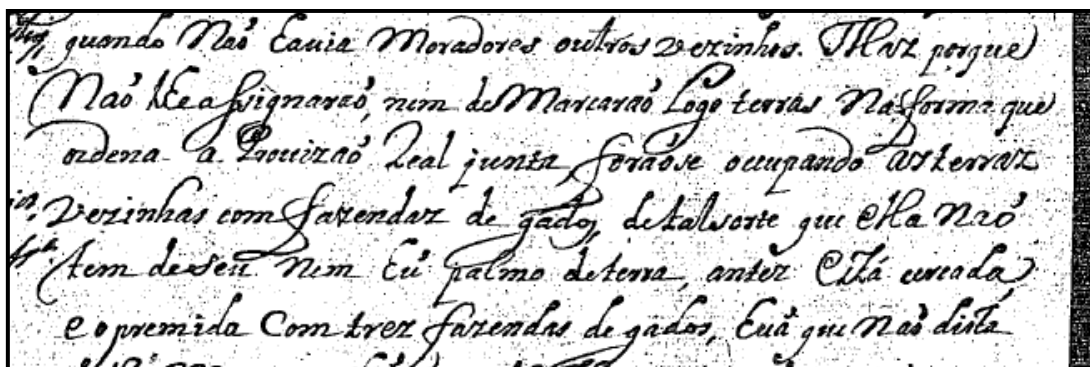 quando Naõ Eauia Moradores outros vezinhos. Mas porque
Naõ lhe assignaraõ, nem deMarcaraõ Logo terras Na forma que
ordena a Prouizaõ Real junta, foraõse occupando as terraz
Vezinhas com fazendaz de gados, de tal sorte que ella Naõ
tem de seu nem hũ palmo de terra, antez Está cercada
e opremida Com trez fazendas de gados, huã que Naõ dista